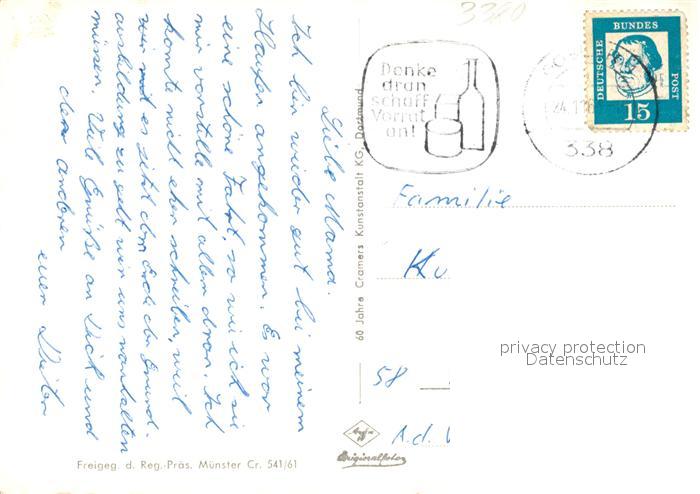 Liebe Mama.
Ich bin wieder gut bei meinem
Haufen angekommen. Es war
eine schöne Fahrt, so wie ich sie
mir vorstelle mit allem dran. Ich
konnte nicht eher schreiben, weil
wir es jetzt dem Ende der Grund-
ausbildung zu geht wir uns ranhalten
müssen. Viele Grüße an Dick und
den anderen
euer Dieter
Freigeg. d. Reg.-Präs. Münster Cr. 541/61
60 Jahre Cramers Kunstanstalt KG, Dortmund
3380
Denke
dran
schaff
Vorrat
an!
338
DEUTSCHE
BUNDES
POST
15
Familie
Ku
58
A.d.
Agfa
Originalfoto
privacy protection
Datenschutz